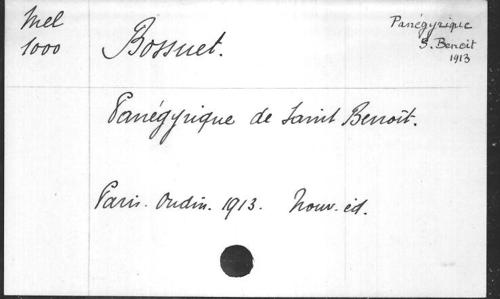 Mel
1000
Bossuet.
Panégyrique
S. Benoit
1913
Panégyrique de Saint Benoît.
Paris. Oudin. 1913. Nouv. éd.